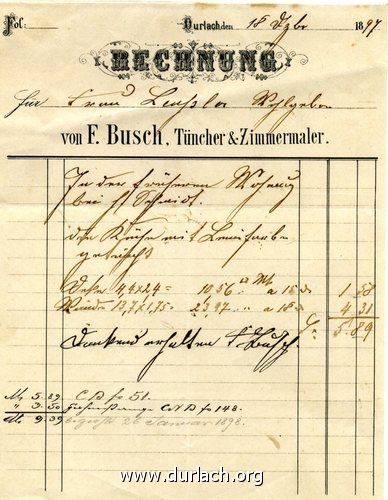 Fol.
Durlach, den 18 Dzbr 1897
RECHNUNG
für Frau Wohlgeboren
von F. Busch, Tüncher & Zimmermaler.
In der früheren Wohnung
bei H. Schmidt.
die Küche mit Leimfarbe
gestrichen
Decke 4,4 x 2,4 = 10,56 □ Mt a 15 1 58
Wände 13,7 x 1,75 = 23,97 " a 18 4 31
5.89
Dankend erhalten F. Busch.
M. 5.89. C B fo 51.
" 3.50 fo 148.
M. 9.39 26 Januar 1898.
www.durlach.org